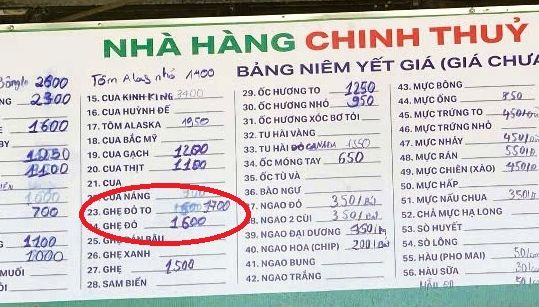 NHÀ HÀNG CHINH THUỶ
BẢNG NIÊM YẾT GIÁ (GIÁ CHƯA
2600
2300
1600
BY
1250
1100
700
1100
1000
MUỐI
Tôm Alas nhỏ 1400
15. CUA KINH KING 3400
16. CUA HUỲNH ĐẾ
17. TÔM ALASKA 1950
18. CUA BẮC MỸ
19. CUA GẠCH 1200
20. CUA THỊT 1100
21. CUA
CUA NÂNG
23. GHẸ ĐỎ TO 1700
GHẸ ĐỎ 1600
25. GHẸ
26. GHẸ XANH
27. GHẸ 1500
28. SAM BIỂN
29. ỐC HƯƠNG TO 1250
30. ỐC HƯƠNG NHỎ 950
31. ỐC HƯƠNG XÓC BƠ TỎI
32. TU HÀI VÀNG
33. TU HÀI CANADA 1350
34. ỐC MÓNG TAY 650
35. ỐC TÙ VÀ
36. BÀO NGƯ
37. NGAO ĐỎ 350/
38. NGAO 2 CÙI 350/
39. NGAO ĐẠI DƯƠNG 450/
40. NGAO HOA (CHIP) 200/
41. NGAO BUNG
42. NGAO TRẮNG
43. MỰC BÔNG
44. MỰC ỐNG 850
45. MỰC TRỨNG TO 450/
46. MỰC TRỨNG NHỎ
47. MỰC NHÁY 450/
48. MỰC RÁN 550/
49. MỰC CHIÊN XÙ 450/
50. MỰC HẤP
51. MỰC NẤU CHUA 350/
52. CHẢ MỰC HẠ LONG
53. SÒ HUYẾT
54. SÒ LÔNG
55. HÀU (PHO MAI) 50/
56. HÀU SỮA 30/
50/